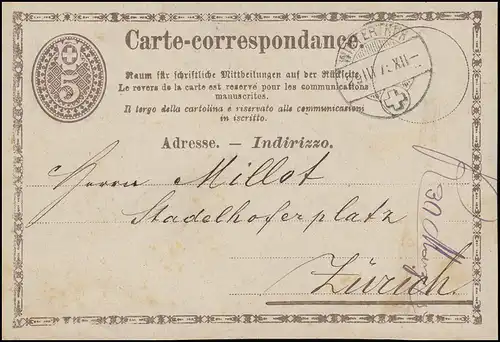 Carte-correspondance.
Raum für schriftliche Mittheilungen auf der Rückseite.
Le revers de la carte est reservé pour les communications
manuscrites.
Il tergo della cartolina è riservato alle communicazioni
in iscritto.
Adresse. — Indirizzo.
Herrn Millot
Stadelhoferplatz
Zürich
5
WINTERTHUR
XII
30